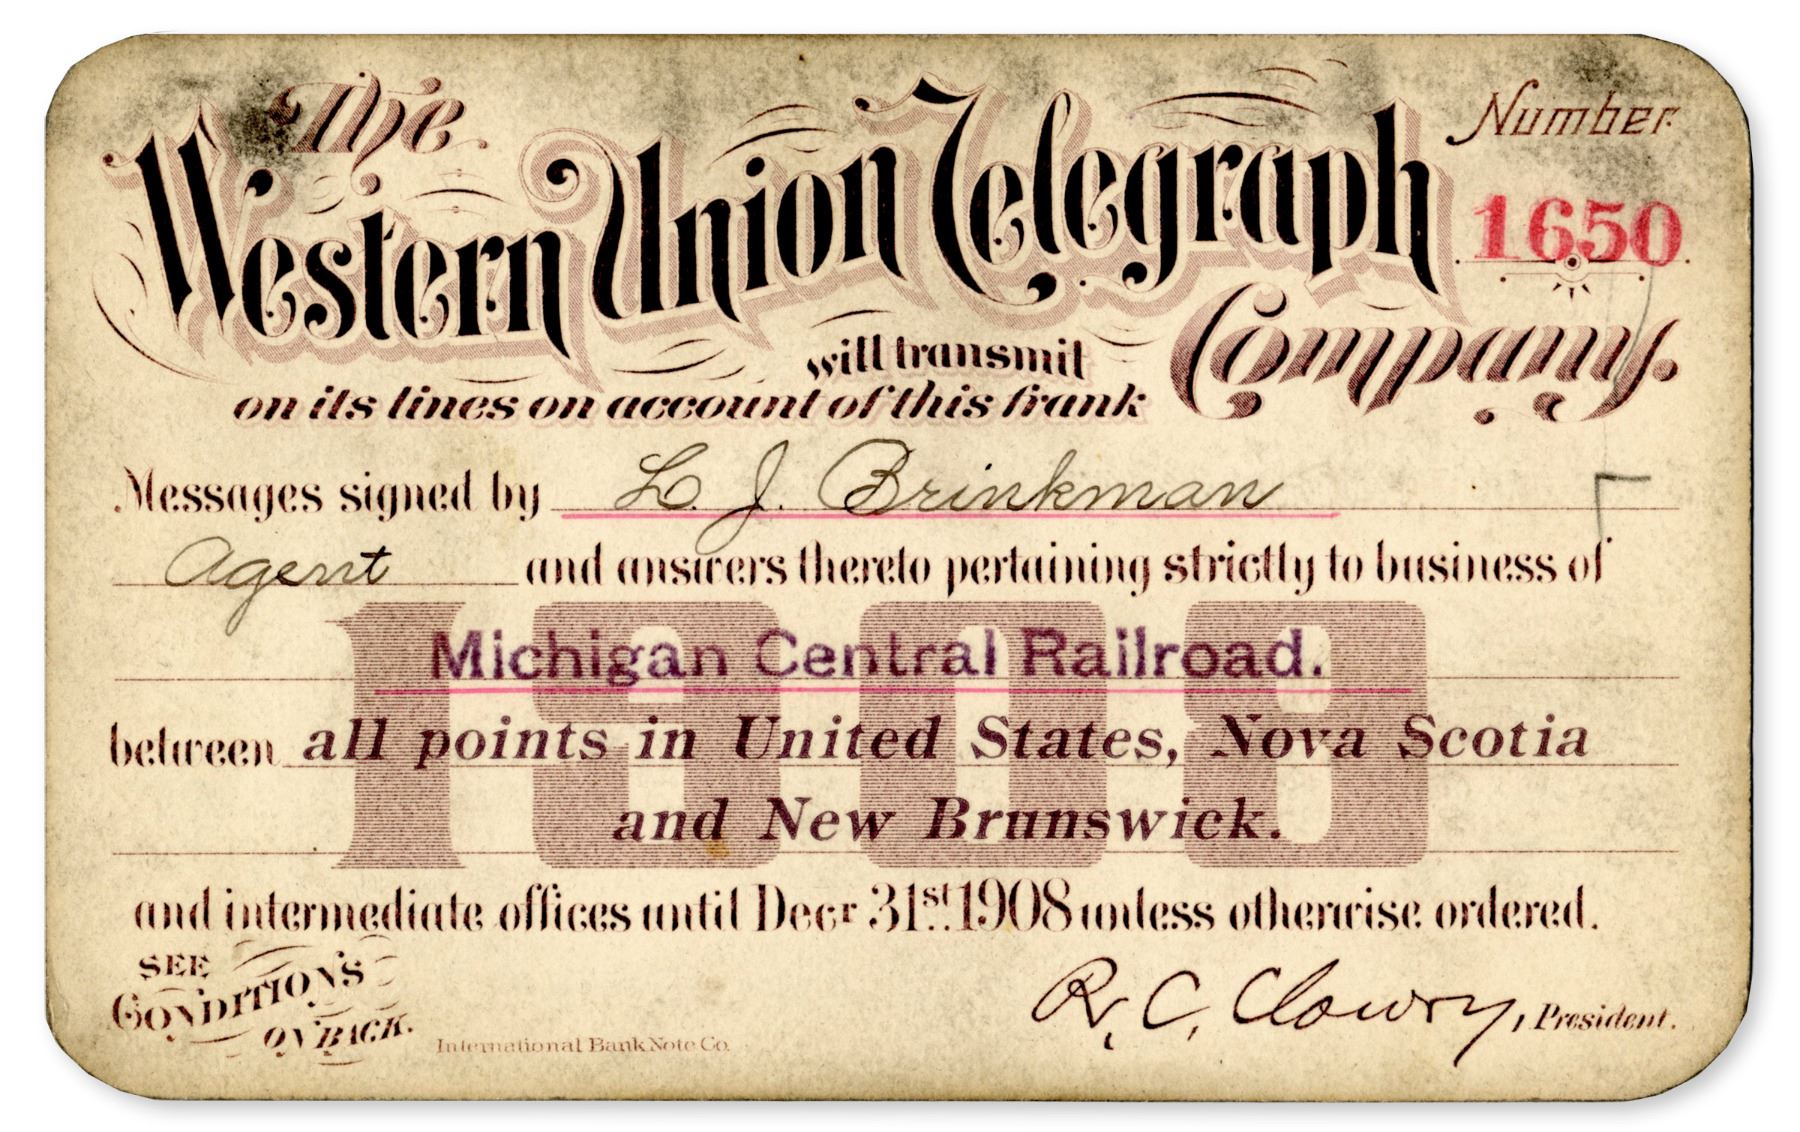 The
Western Union Telegraph
Number
1650
Company.
will transmit
on its lines on account of this frank
Messages signed by L. J. Brinkman
Agent and answers thereto pertaining strictly to business of
1908
Michigan Central Railroad.
between all points in United States, Nova Scotia
and New Brunswick.
and intermediate offices until Decr 31st 1908 unless otherwise ordered.
SEE
CONDITIONS
ON BACK.
International Bank Note Co.
R. C. Clowry, President.